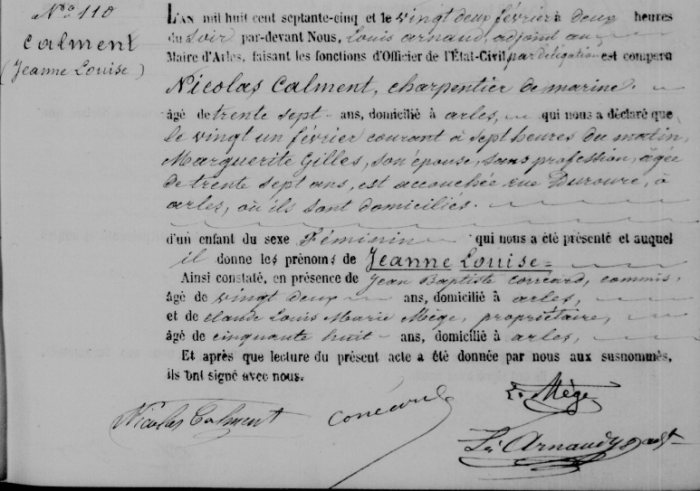 No 110
Calment
(Jeanne Louise)
L'AN mil huit cent septante-cinq et le vingt deux février à deux heures
du soir par-devant Nous, Louis arnaud, adjoint au
Maire d'Arles, faisant les fonctions d'Officier de l'État-Civil par délégation est comparu
Nicolas Calment, charpentier de marine.
âgé de trente sept ans, domicilié à arles, qui nous a déclaré que
le vingt un février courant à sept heures du matin,
Marguerite Gilles, son épouse, sans profession, âgée
de trente sept ans, est accouchée rue Duroure, à
arles, où ils sont domiciliés.
d'un enfant du sexe Féminin qui nous a été présenté et auquel
il donne les prénoms de Jeanne Louise
Ainsi constaté, en présence de Jean Baptiste correard, commis,
âgé de vingt deux ans, domicilié à arles,
et de claude Louis Marie Mège, propriétaire,
âgé de cinquante huit ans, domicilié à arles,
Et après que lecture du présent acte a été donnée par nous aux susnommés,
ils ont signé avec nous.
Nicolas Calment
Mège
Arnaud